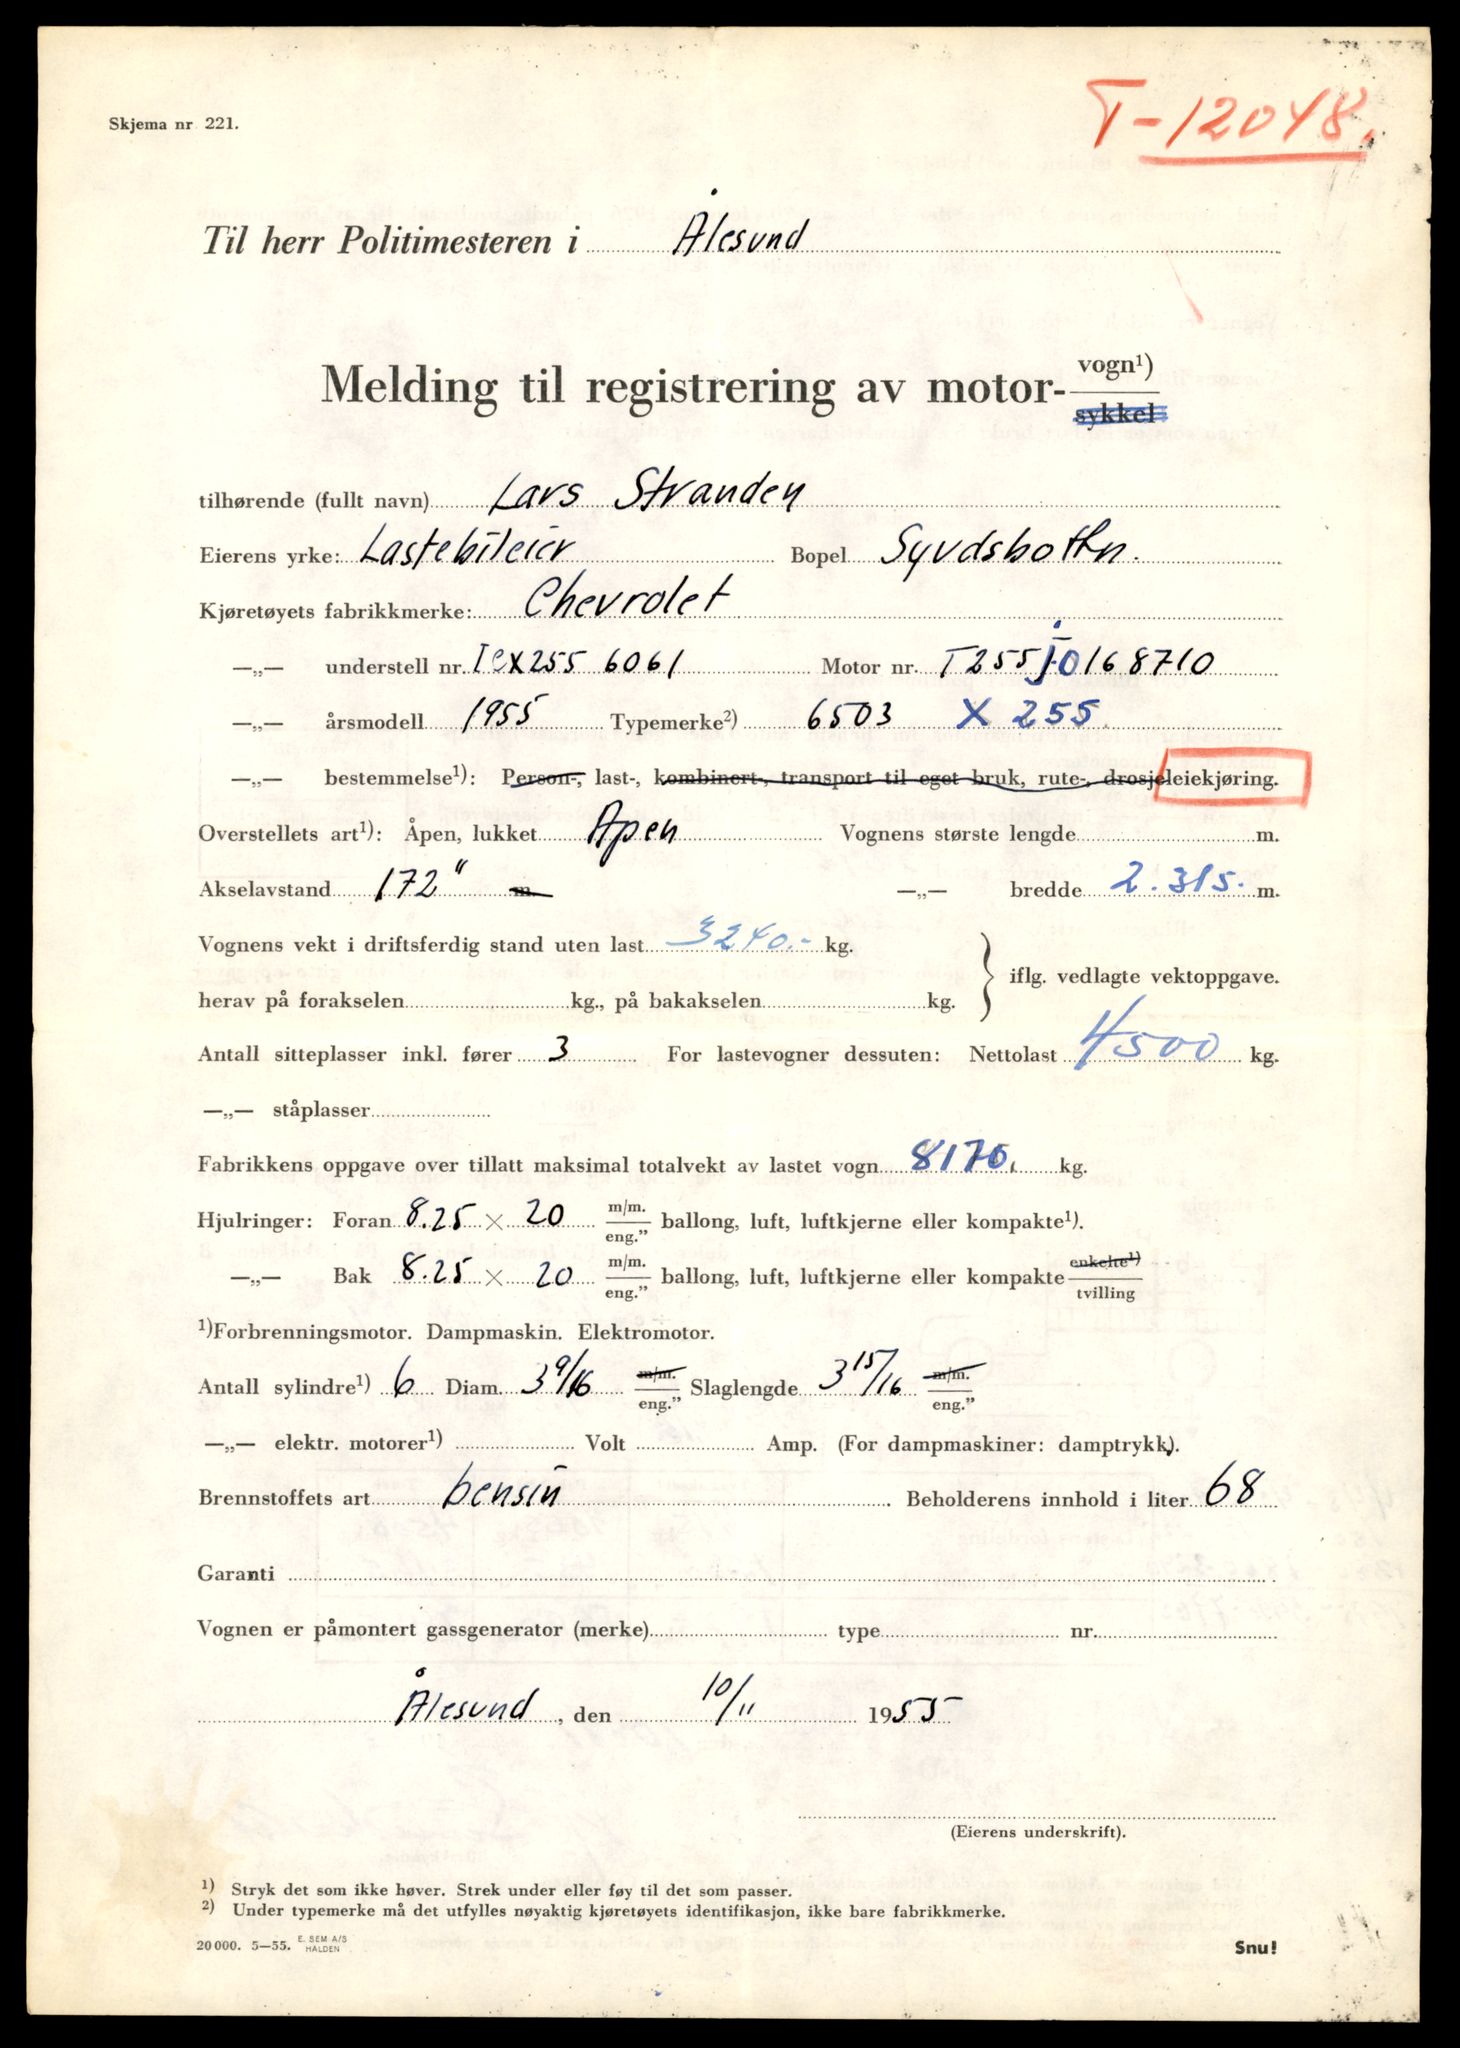 Skjema nr 221.
T-12048.
Til herr Politimesteren i Ålesund
Melding til registrering av motor- vogn¹)
sykkel
tilhørende (fullt navn) Lars Stranden
Eierens yrke: Lastebileier Bopel Syvdsbotn.
Kjøretøyets fabrikkmerke: Chevrolet
—„— understell nr. Iex255 6061 Motor nr. T255j0168710
—„— årsmodell 1955 Typemerke²) 6503 X 255
—„— bestemmelse¹): Person-, last-, kombinert-, transport til eget bruk, rute-, drosje leiekjøring.
Overstellets art¹): Åpen, lukket Apen Vognens største lengde m.
Akselavstand 172" m. —„— bredde 2.315. m.
Vognens vekt i driftsferdig stand uten last 3240.- kg.
iflg. vedlagte vektoppgave.
herav på forakselen kg., på bakakselen kg.
Antall sitteplasser inkl. fører 3 For lastevogner dessuten: Nettolast 4500 kg.
—„— ståplasser
Fabrikkens oppgave over tillatt maksimal totalvekt av lastet vogn 8170. kg.
Hjulringer: Foran 8.25 × 20 m/m. eng.” ballong, luft, luftkjerne eller kompakte¹).
—„— Bak 8.25 × 20 m/m. eng.” ballong, luft, luftkjerne eller kompakte enkelte¹) tvilling
¹)Forbrenningsmotor. Dampmaskin. Elektromotor.
Antall sylindre¹) 6 Diam. 3 9/16 m/m. eng.” Slaglengde 3 15/16 m/m. eng.”
—„— elektr. motorer¹) Volt Amp. (For dampmaskiner: damptrykk).
Brennstoffets art bensin Beholderens innhold i liter 68
Garanti
Vognen er påmontert gassgenerator (merke) type nr.
Ålesund, den 10/11 1955
(Eierens underskrift).
¹) Stryk det som ikke høver. Strek under eller føy til det som passer.
²) Under typemerke må det utfylles nøyaktig kjøretøyets identifikasjon, ikke bare fabrikkmerke.
20 000. 5—55. E. SEM A/S HALDEN
Snu!